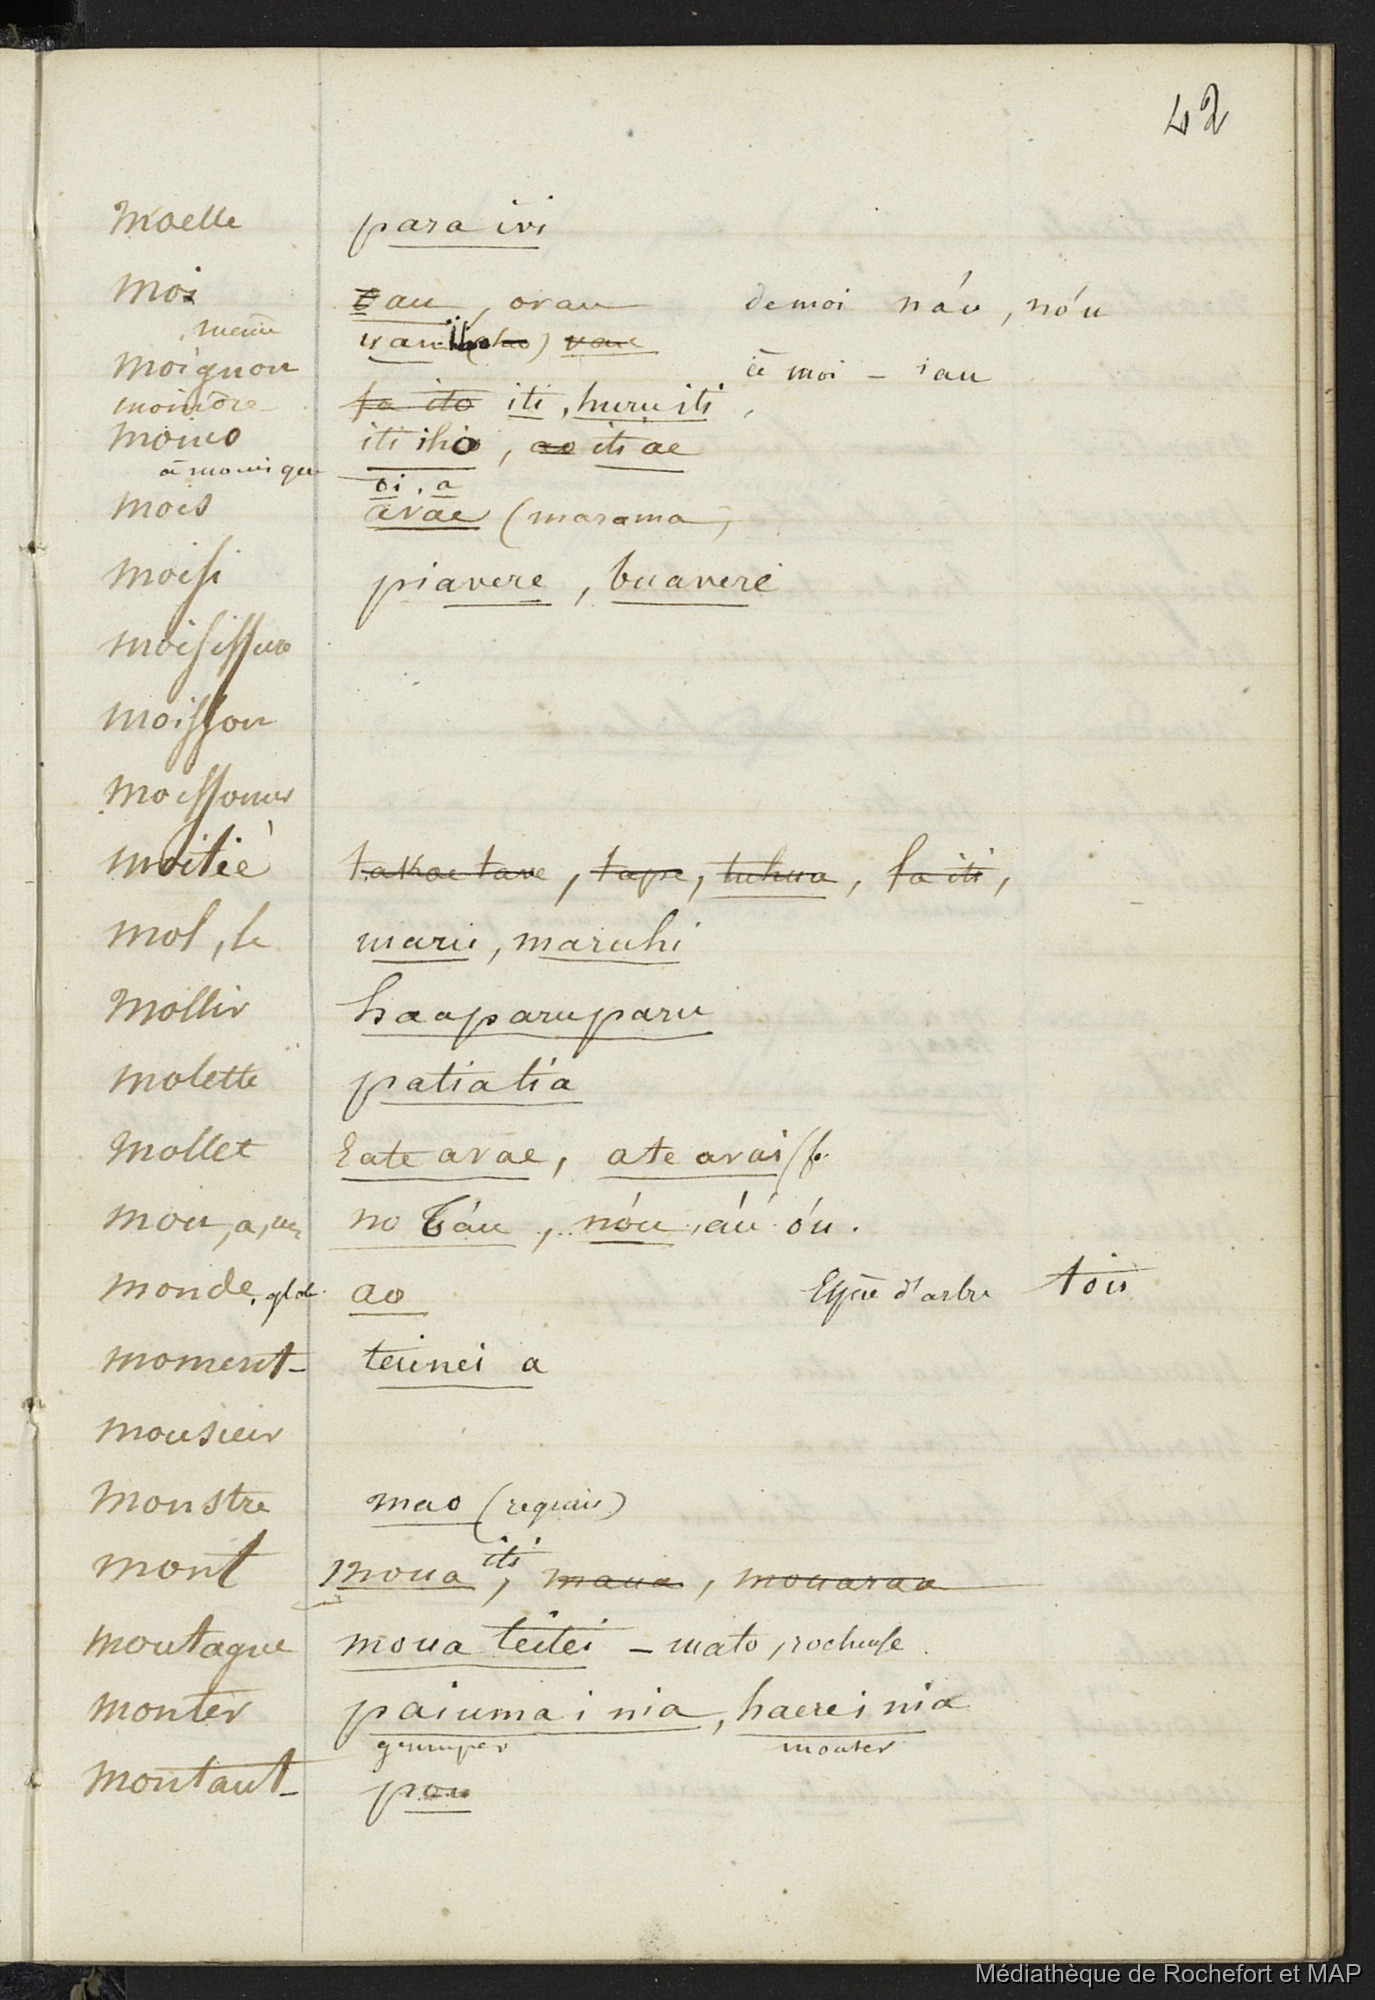 42
Moelle para ivi
moi vau, ovau de moi náu, nóu
, meme vau iho
moignon à moi - iau
moindre fa ito iti, huru iti,
moins iti iho, ao iti ae
à moins que oi, a
mois avae (marama)
moisi piavere, buavere
moisissure
moisson
moissoner
moitié takae tave, tape, tuhaa, fa iti,
mol, le maru, maruhi
mollir haaparuparu
molette patiatia
mollet Eate avae, ate avai
mon, a, es no Táu, nóu, áu óu.
monde, glob. ao Espèce d'arbre tou
moment teienei a
monsieur
monstre mao (requin)
mont moua iti, maua, mouaraa
montagne moua teitei - mato, rocheuse.
monter paiumai nia, haere i nia
grimper monter
montant pou
Médiathèque de Rochefort et MAP